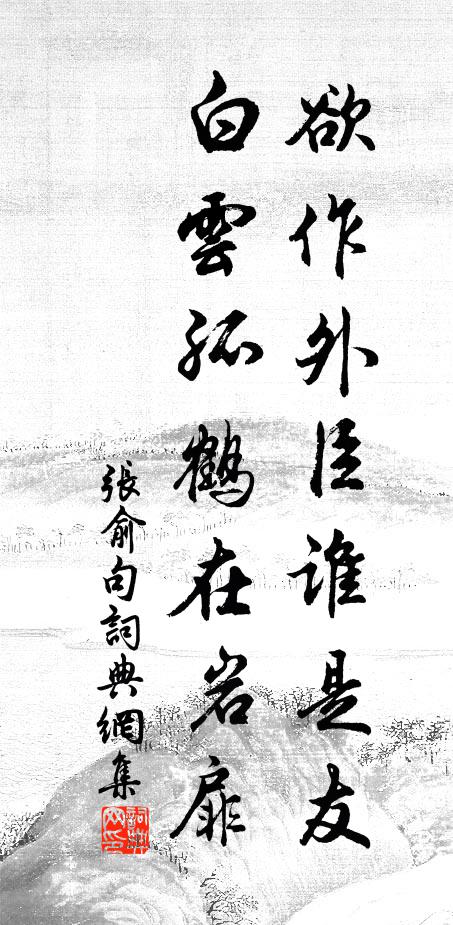 欲作外臣誰是友
白雲孤鶴在岩扉
張俞句詞典網集